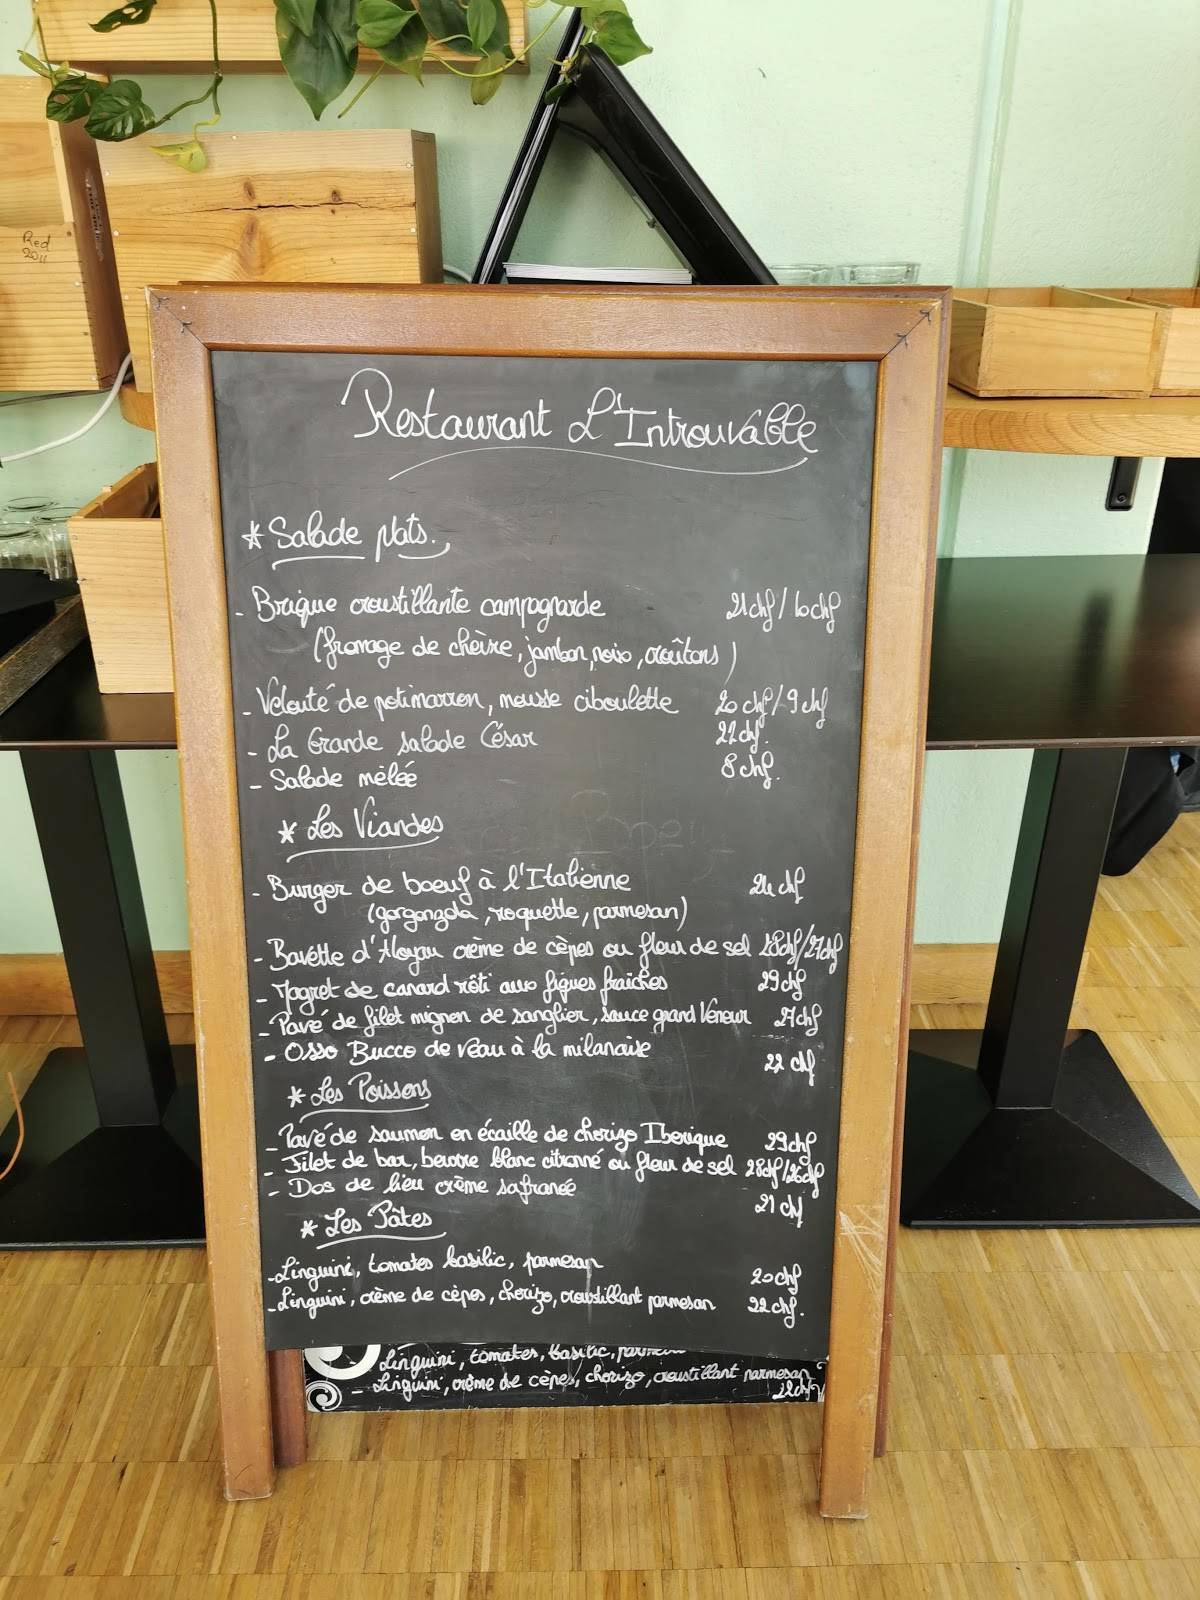 Red
2011
Restaurant L'Introuvable
* Salade plats.
- Brique croustillante campagnarde 21 chf / 10 chf
(fromage de chèvre, jambon, noix, croûtons)
- Velouté de potimarron, mousse ciboulette 20 chf / 9 chf
- La Grande salade César 22 chf.
- Salade mêlée 8 chf.
* Les Viandes
- Burger de boeuf à l'Italienne 24 chf
(gorgonzola, roquette, parmesan)
- Bavette d'Aloyau crème de cèpes ou fleur de sel 28chf/27chf
- Magret de canard rôti aux figues fraiches 29 chf
- Pavé de filet mignon de sanglier, sauce grand Veneur 27 chf
- Osso Bucco de veau à la milanaise 22 chf
* Les Poissons
- Pavé de saumon en écaille de chorizo Iberique 29 chf
- Filet de bar, beurre blanc citronné ou fleur de sel 28chf/26chf
- Dos de lieu crème safranée 21 chf
* Les Pâtes
- Linguini, tomates basilic, parmesan 20 chf
- Linguini, crème de cèpes, chorizo, croustillant parmesan 22 chf.
Linguini, tomates, basilic,
- Linguini, crème de cèpes, chorizo, croustillant parmesan
22chf